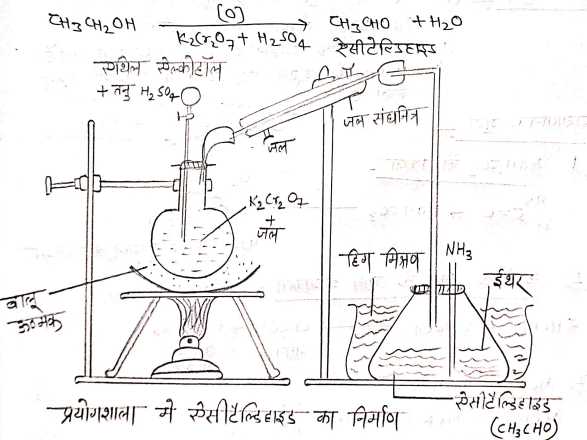 CH3CH2OH [O] K2Cr2O7 + H2SO4 CH3CHO + H2O
ऐसीटेल्डिहाइड
एथिल ऐल्कोहॉल
+ तनु H2SO4
जल
जल संघनित्र
K2Cr2O7
+
जल
हिम मिश्रण
NH3
ईथर
बालू
ऊष्मक
ऐसीटैल्डिहाइड
(CH3CHO)
प्रयोगशाला में ऐसीटैल्डिहाइड का निर्माण